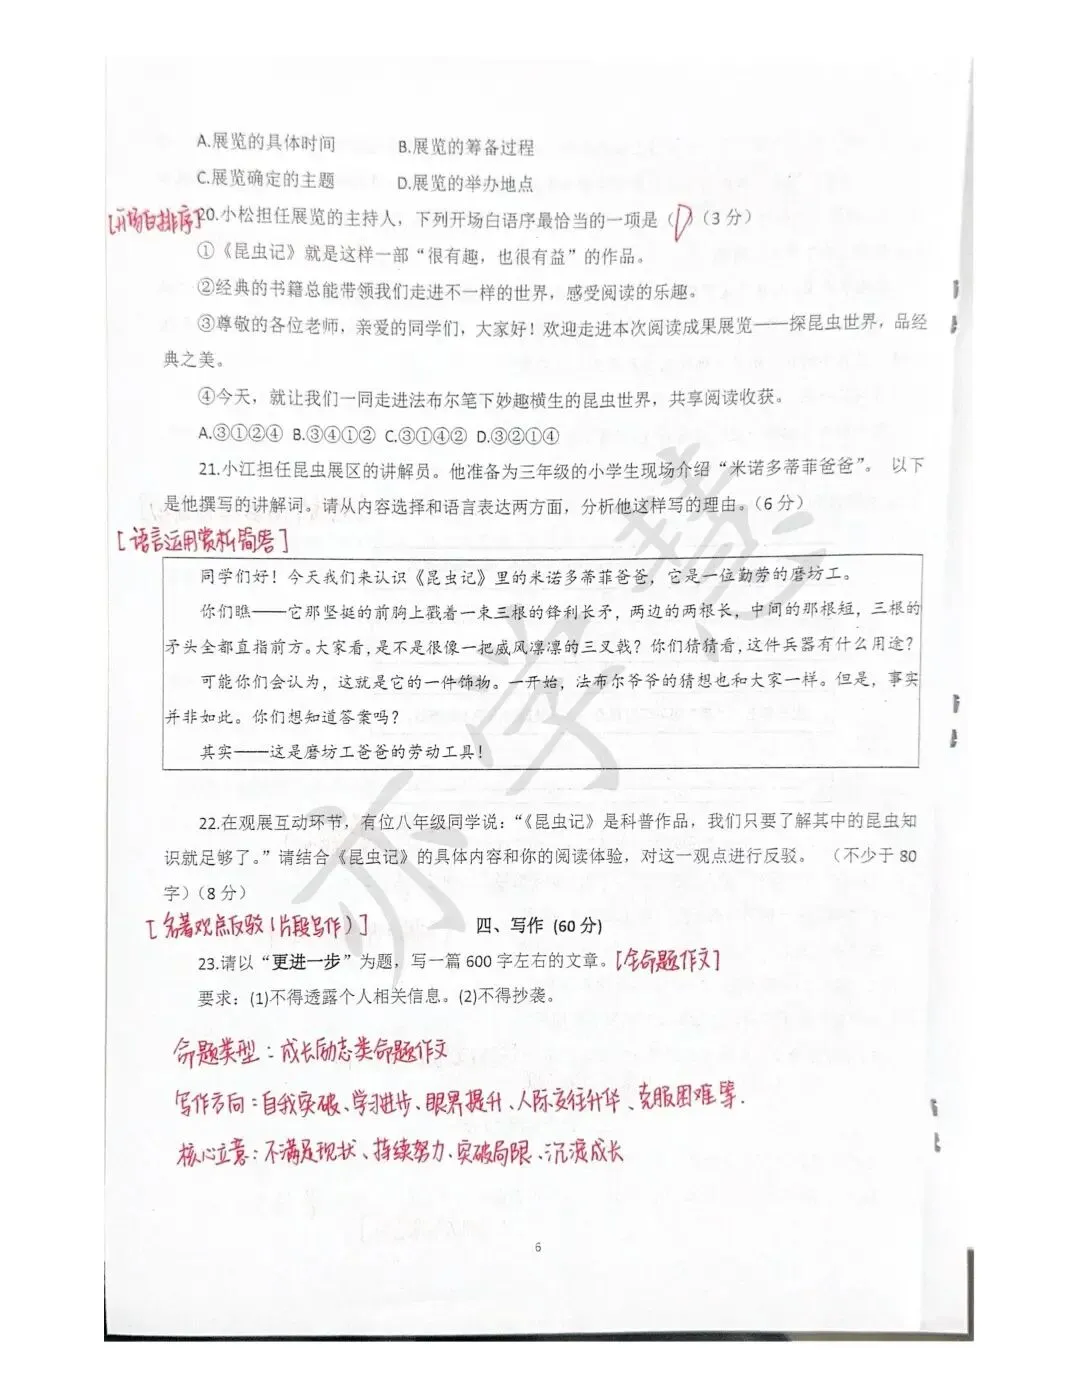 A.展览的具体时间 B.展览的筹备过程
C.展览确定的主题 D.展览的举办地点
[开场白排序]20.小松担任展览的主持人，下列开场白语序最恰当的一项是（D）（3分）
①《昆虫记》就是这样一部“很有趣，也很有益”的作品。
②经典的书籍总能带领我们走进不一样的世界，感受阅读的乐趣。
③尊敬的各位老师，亲爱的同学们，大家好！欢迎走进本次阅读成果展览——探昆虫世界，品经
典之美。
④今天，就让我们一同走进法布尔笔下妙趣横生的昆虫世界，共享阅读收获。
A.③①②④ B.③④①② C.③①④② D.③②①④
21.小江担任昆虫展区的讲解员。他准备为三年级的小学生现场介绍“米诺多蒂菲爸爸”。 以下
是他撰写的讲解词。请从内容选择和语言表达两方面，分析他这样写的理由。（6分）
[语言运用赏析简答]
同学们好！今天我们来认识《昆虫记》里的米诺多蒂菲爸爸，它是一位勤劳的磨坊工。
你们瞧——它那坚挺的前胸上戳着一束三根的锋利长矛，两边的两根长，中间的那根短，三根的
矛头全都直指前方。大家看，是不是很像一把威风凛凛的三叉戟？你们猜猜看，这件兵器有什么用途？
可能你们会认为，这就是它的一件饰物。一开始，法布尔爷爷的猜想也和大家一样。但是，事实
并非如此。你们想知道答案吗？
其实——这是磨坊工爸爸的劳动工具！
22.在观展互动环节，有位八年级同学说：“《昆虫记》是科普作品，我们只要了解其中的昆虫知
识就足够了。”请结合《昆虫记》的具体内容和你的阅读体验，对这一观点进行反驳。 （不少于80
字）（8分）
[名著观点反驳（片段写作）] 四、写作 (60分)
23.请以“更进一步”为题，写一篇600字左右的文章。[全命题作文]
要求：(1)不得透露个人相关信息。(2)不得抄袭。
命题类型：成长励志类命题作文
写作方向：自我突破、学习进步、眼界提升、人际交往升华、克服困难等.
核心立意：不满足现状、持续努力、突破局限、沉淀成长
6